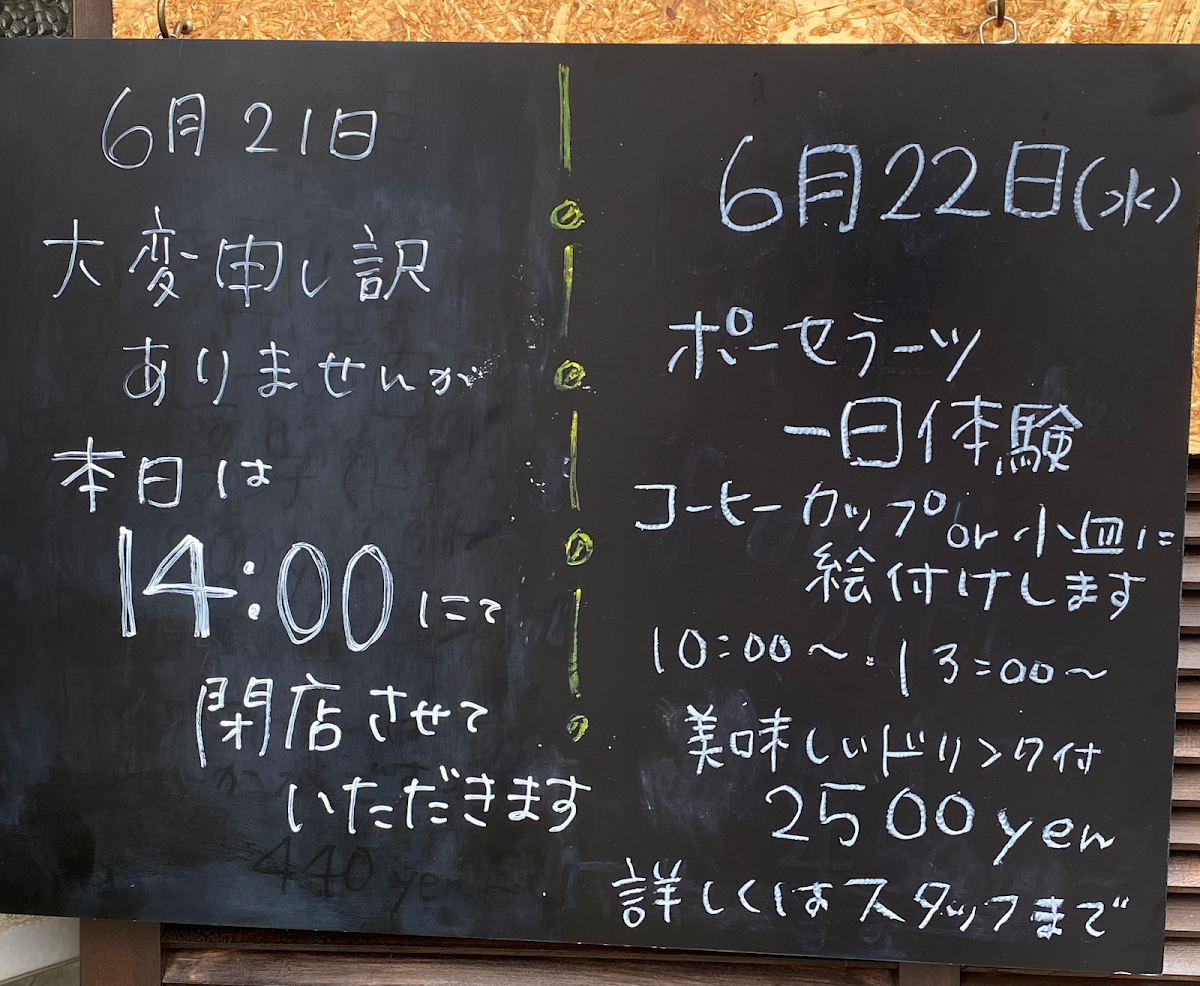 6月21日
大変申し訳
ありませんが
本日は
14:00にて
閉店させて
いただきます
6月22日(水)
ポーセラーツ
一日体験
コーヒーカップor小皿に
絵付けします
10:00〜・13:00〜
美味しいドリンク付
2500yen
詳しくはスタッフまで